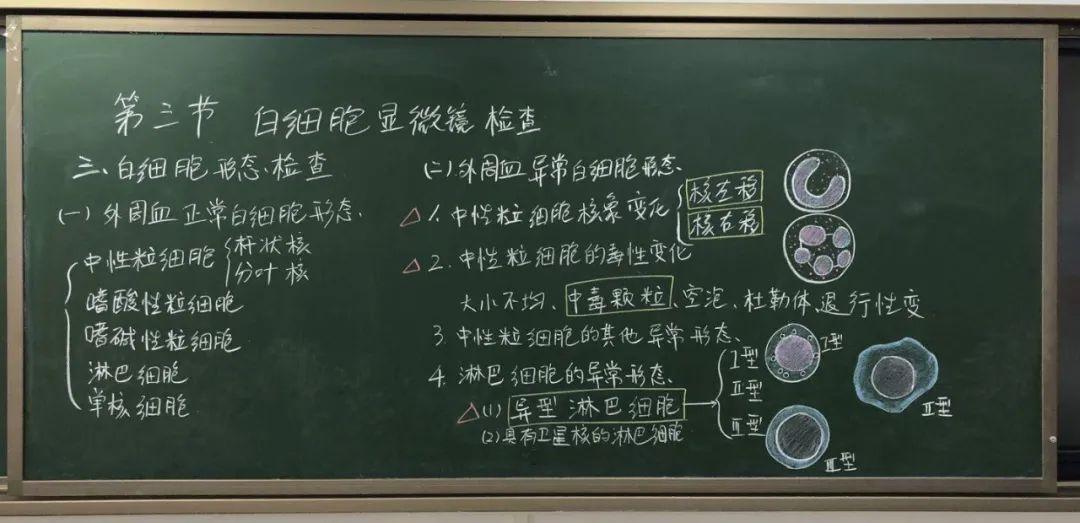 第三节 白细胞显微镜检查
三、白细胞形态检查
(一)外周血正常白细胞形态
中性粒细胞 杆状核
分叶核
嗜酸性粒细胞
嗜碱性粒细胞
淋巴细胞
单核细胞
(二)外周血异常白细胞形态
△1.中性粒细胞核象变化 核左移
核右移
△2.中性粒细胞的毒性变化
大小不均、中毒颗粒、空泡、杜勒体、退行性变
3.中性粒细胞的其他异常形态
4.淋巴细胞的异常形态
△(1)异型淋巴细胞
(2)具有卫星核的淋巴细胞
I型
II型
III型
I型
II型
III型